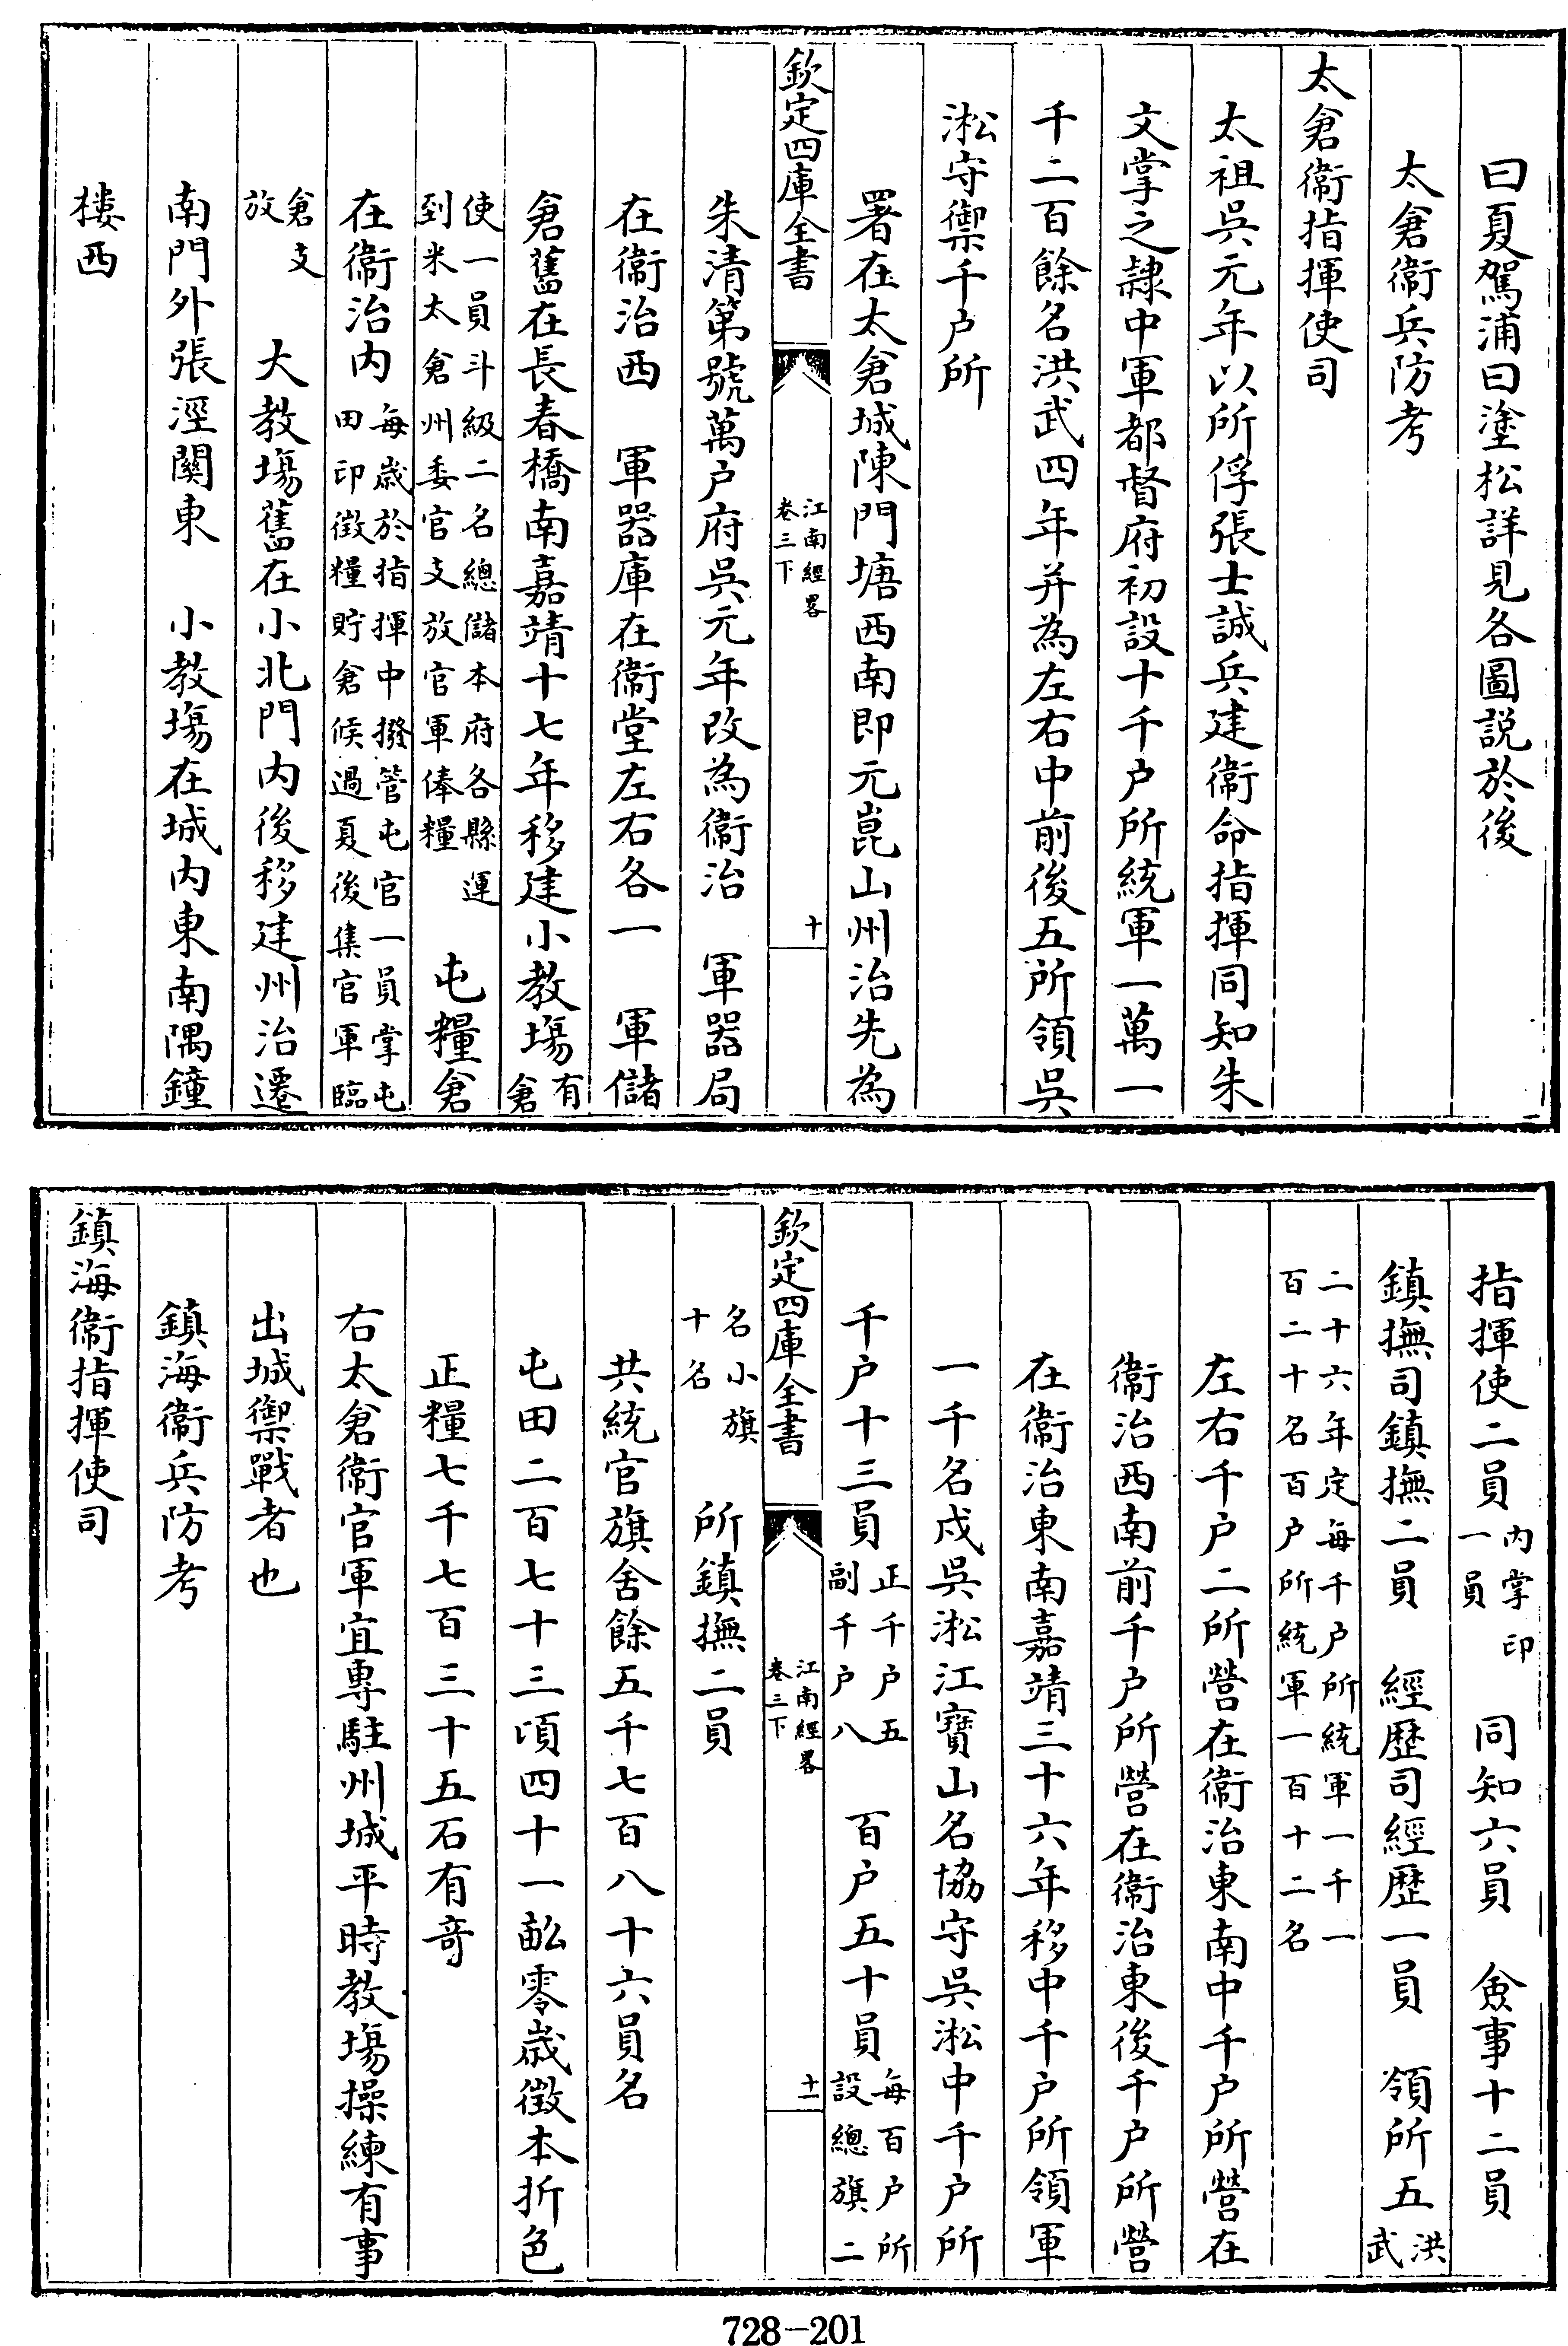 曰夏駕浦曰塗松詳見各圖説於後
太倉衞兵防考
太倉衞指揮使司
太祖吳元年以所俘張士誠兵建衞命指揮同知朱
文掌之隷中軍都督府初設十千户所統軍一萬一
千二百餘名洪武四年并為左右中前後五所領吳
淞守禦千户所
署在太倉城陳門塘西南即元崑山州治先為
欽定四庫全書
江南經畧
卷三下
十
朱清第號萬户府吳元年改為衞治　軍器局
在衞治西　軍器庫在衞堂左右各一　軍儲
倉舊在長春橋南嘉靖十七年移建小教場有
倉
使一員斗級二名總儲本府各縣運
到米太倉州委官支放官軍俸糧
屯糧倉
在衞治内
每歳於指揮中撥管屯官一員掌屯
田印徵糧貯倉候過夏後集官軍臨
倉支
放
大教塲舊在小北門内後移建州治遷
南門外張涇關東　小教塲在城内東南隅鐘
樓西
指揮使二員
内掌印
一員
同知六員　僉事十二員
鎮撫司鎮撫二員　經歷司經歷一員　領所五
洪
武
二十六年定每千户所統軍一千一
百二十名百户所統軍一百十二名
左右千户二所營在衞治東南中千户所營在
衞治西南前千户所營在衞治東後千户所營
在衞治東南嘉靖三十六年移中千户所領軍
一千名戍吳淞江寶山名協守吳淞中千户所
千户十三員
正千户五
副千户八
百户五十員
每百户所
設總旗二
欽定四庫全書
江南經畧
卷三下
十一
名小旗
十名
所鎮撫二員
共統官旗舍餘五千七百八十六員名
屯田二百七十三頃四十一畝零歳徵本折色
正糧七千七百三十五石有奇
右太倉衞官軍宜專駐州城平時教塲操練有事
出城禦戰者也
鎮海衞兵防考
鎮海衞指揮使司
728-201